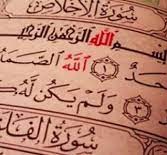 سُورَةُ الْإِخْلَاصِ
بِسْمِ اللَّهِ الرَّحْمَٰنِ الرَّحِيمِ
حَدٌ ١ اللَّهُ الصَّمَ
٣ وَلَمْ يَكُن لَّهُ
سُورَةُ الْفَلَ